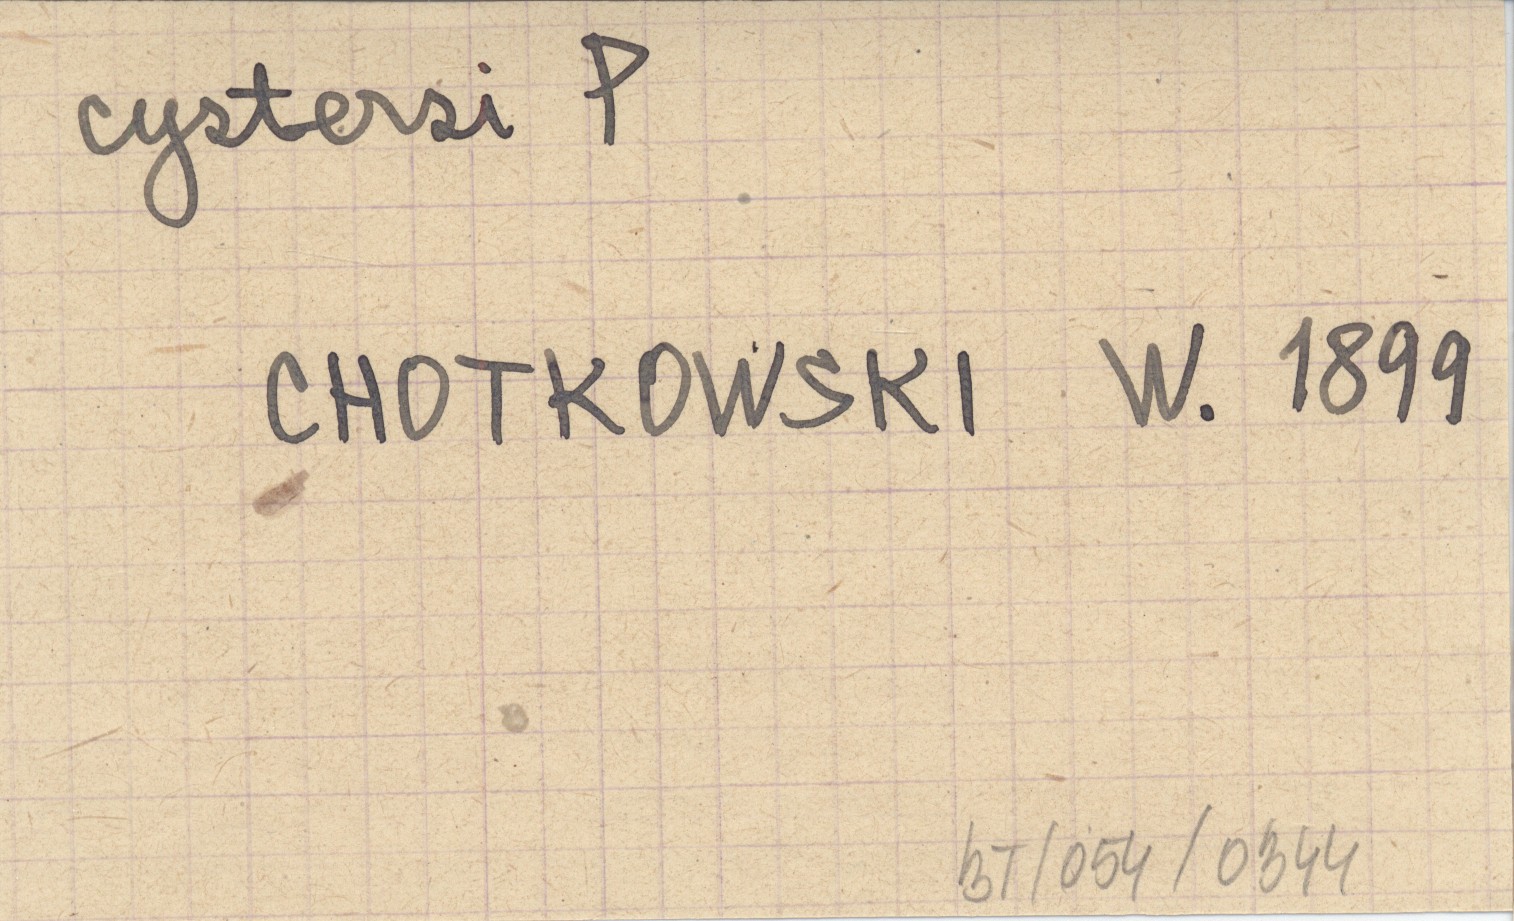 cystersi P
CHOTKOWSKI W. 1899
BT/054/0344